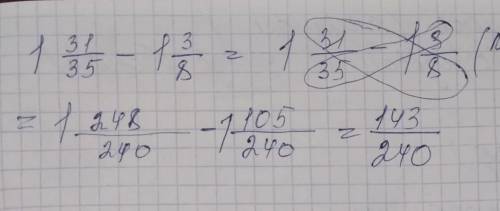 1 31/35 - 1 3/8 = 1 31/35 - 1 3/8 (
= 1 248/240 - 1 105/240 = 143/240